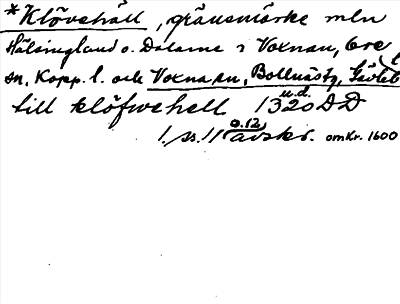 *Klövehäll, gränsmärke mln
Hälsingland o. Dalarne i Voxnan, Ore
sn, Kopp. l. och Voxna sn, Bollnästg, Gävleb l
till klöfwehell 1320 u.d. DD
1. ss. 11 o. 12 avskr. omkr. 1600